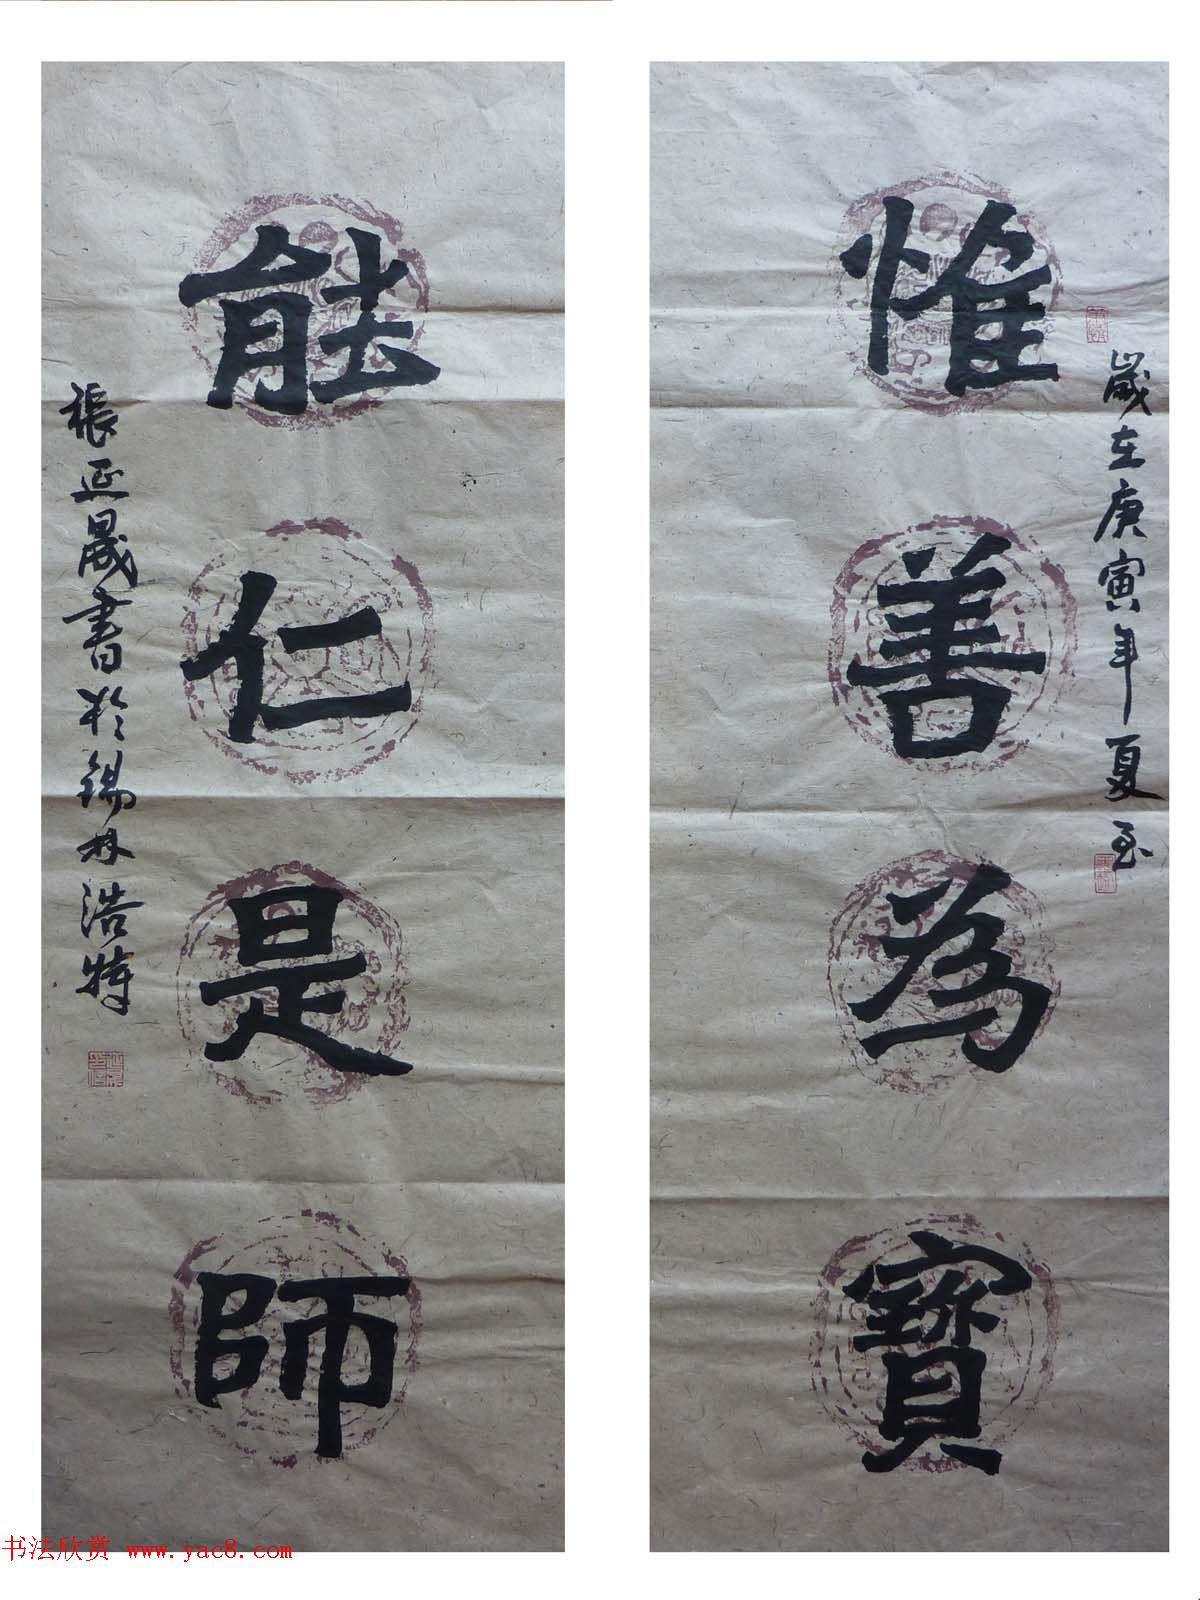 惟善為寶
歲在庚寅年夏至
能仁是師
張延晟書於錫林浩特
书法欣赏 www.yac8.com